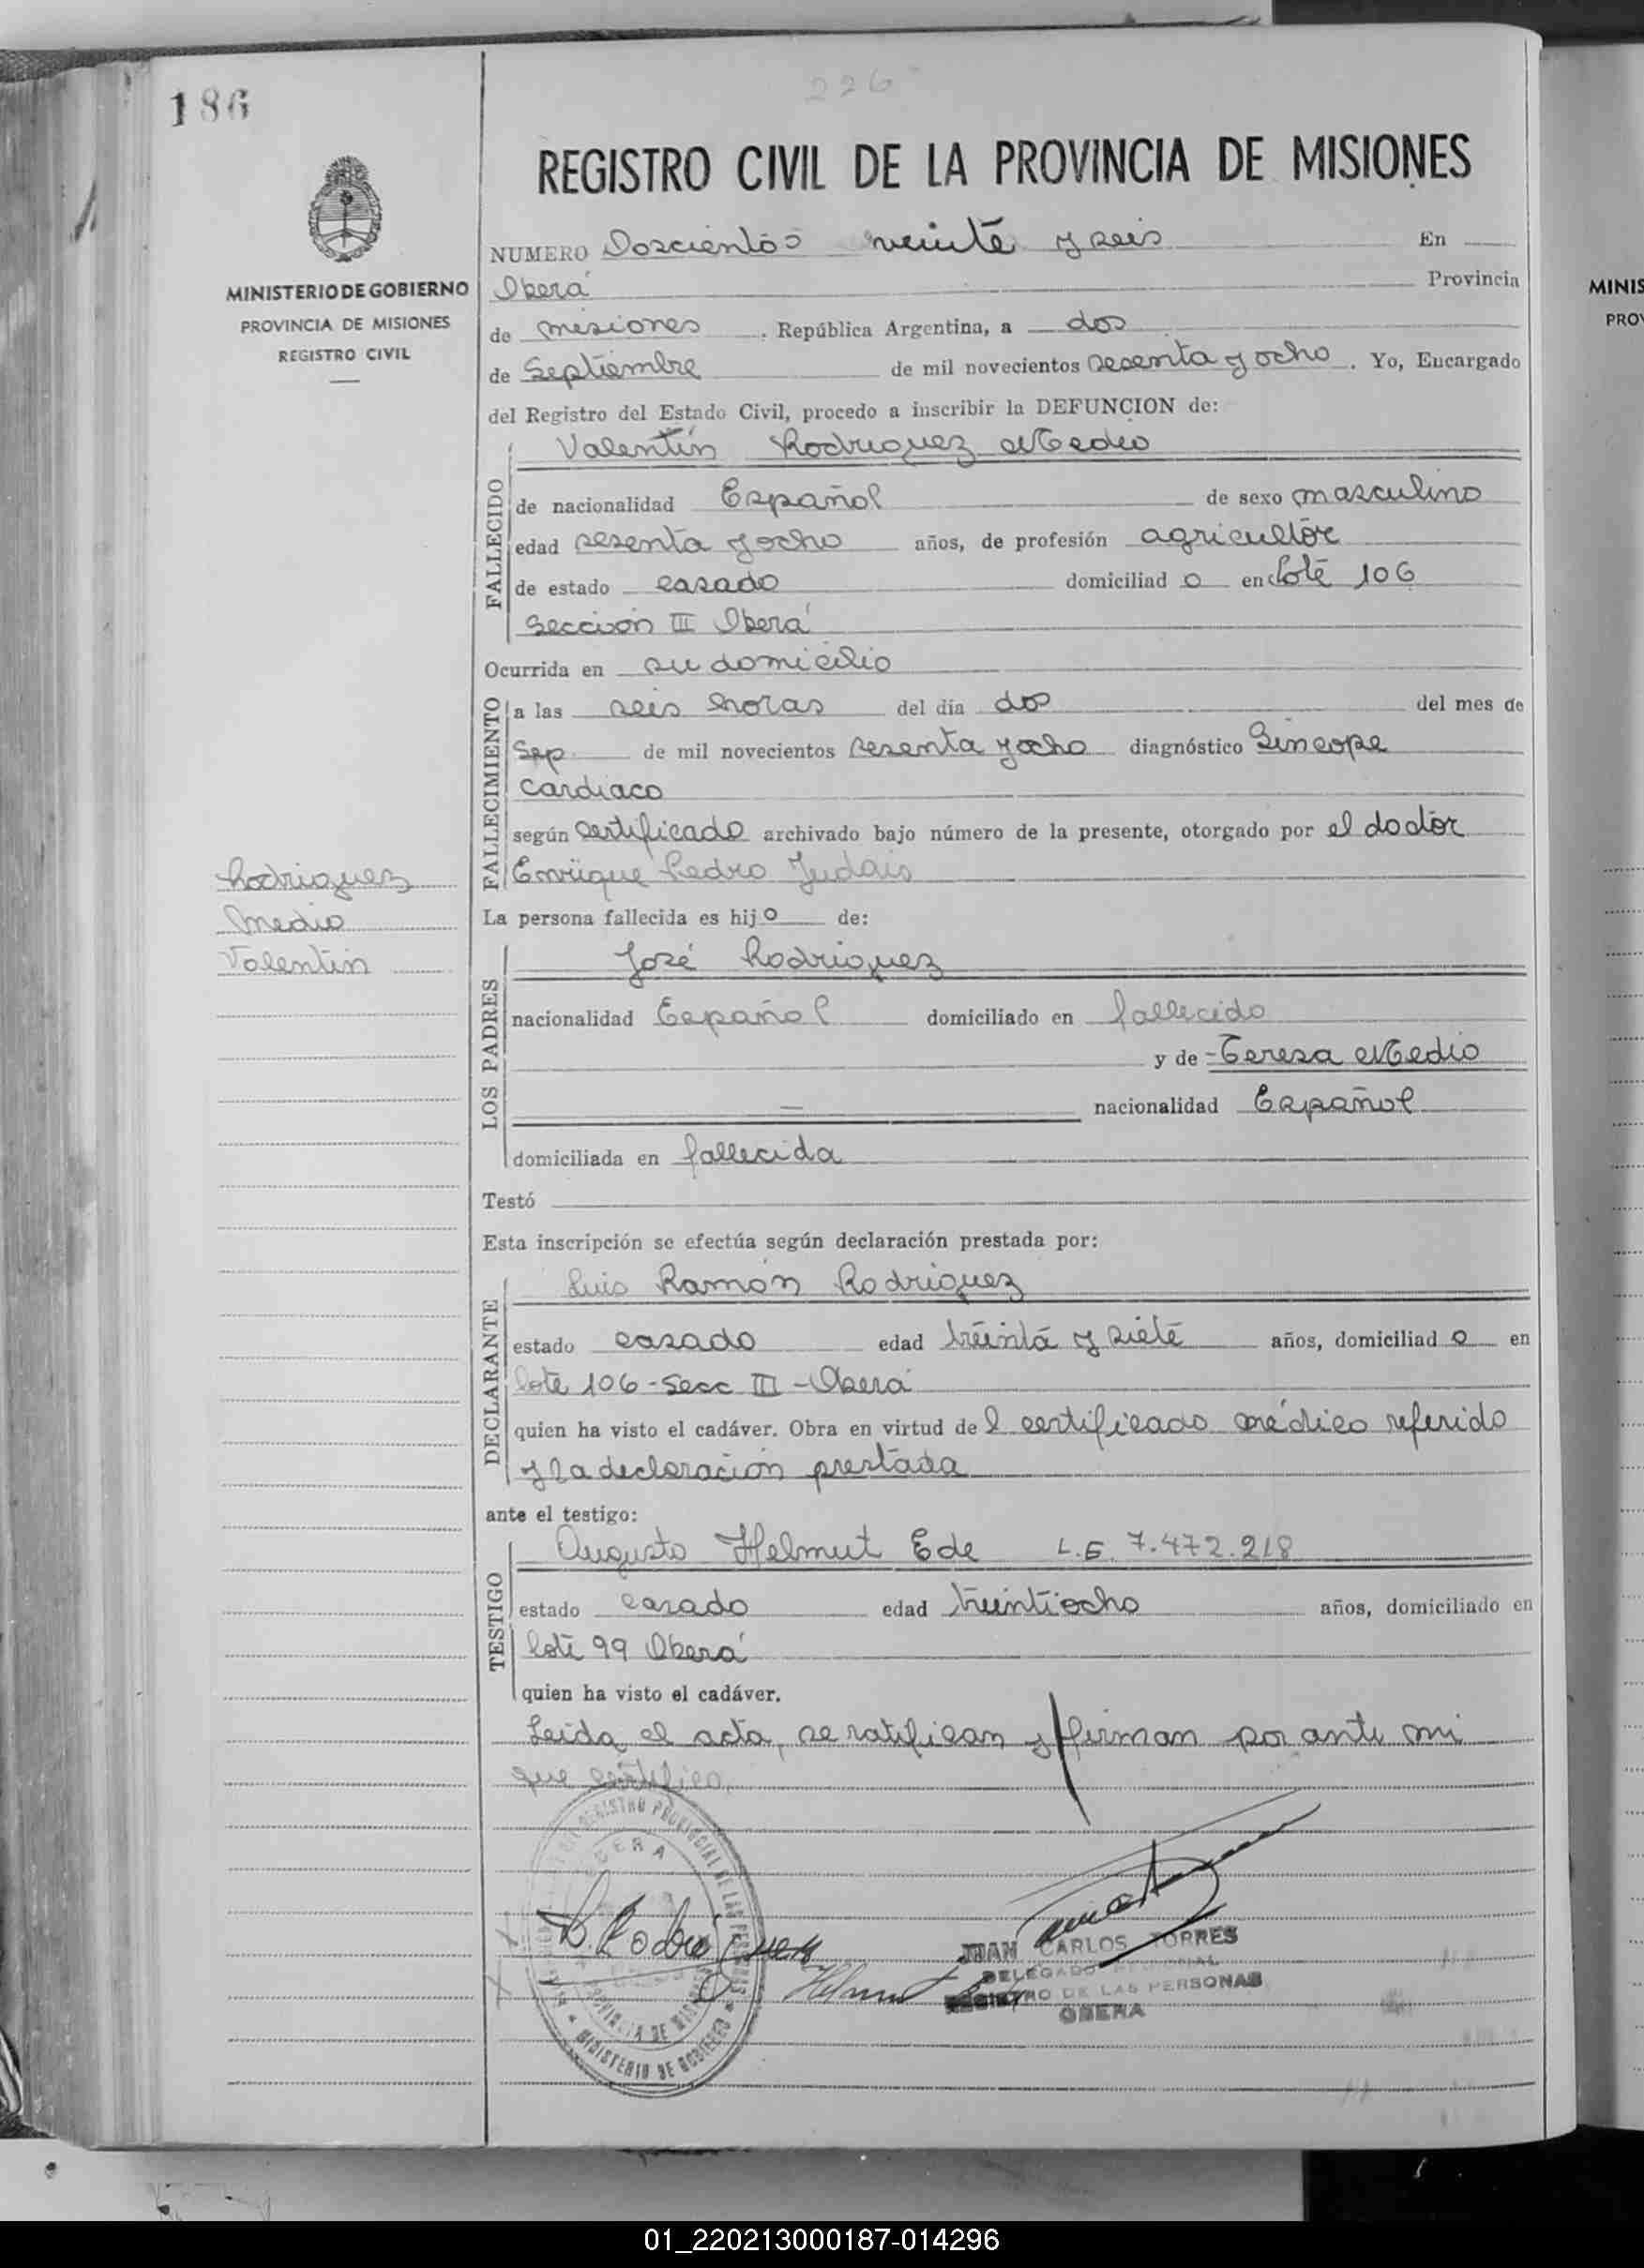 186
226
REGISTRO CIVIL DE LA PROVINCIA DE MISIONES
MINISTERIO DE GOBIERNO
PROVINCIA DE MISIONES
REGISTRO CIVIL
NUMERO Doscientos veinte y seis En
Oberá Provincia
de misiones . República Argentina, a dos
de Septiembre de mil novecientos sesenta y ocho . Yo, Encargado
del Registro del Estado Civil, procedo a inscribir la DEFUNCION de:
FALLECIDO
Valentín Rodriguez Medio
de nacionalidad Español de sexo masculino
edad sesenta y ocho años, de profesión agricultor
de estado casado domiciliad o en Lote 106
Sección III Oberá
Ocurrida en su domicilio
FALLECIMIENTO
a las seis horas del día dos del mes de
Sep de mil novecientos sesenta y ocho diagnóstico Sincope
Cardiaco
según certificado archivado bajo número de la presente, otorgado por el doctor
Enrique Pedro
Rodriguez
Medio
Valentin
La persona fallecida es hij o de:
LOS PADRES
José Rodriguez
nacionalidad Español domiciliado en fallecido
y de Teresa Medio
— nacionalidad Español
domiciliada en fallecida
Testó
Esta inscripción se efectúa según declaración prestada por:
DECLARANTE
Luis Ramón Rodriguez
estado casado edad treinta y siete años, domiciliad o en
lote 106 - Secc III - Oberá
quien ha visto el cadáver. Obra en virtud de l certificado médico referido
y la declaración prestada
ante el testigo:
TESTIGO
Augusto Helmut Ede L.E. 7.472.218
estado casado edad treintiocho años, domiciliado en
lote 99 Oberá
quien ha visto el cadáver.
Leída el acta, se ratifican y firman por ante mi
que certifico.
REGISTRO PROVINCIAL DE LAS PERSONAS
OBERA
PROVINCIA DE MISIONES
MINISTERIO DE GOBIERNO
L. Rodriguez
Helmut
JUAN CARLOS TORRES
DELEGADO
REGISTRO DE LAS PERSONAS
OBERA
MINIS
PROV
01_220213000187-014296